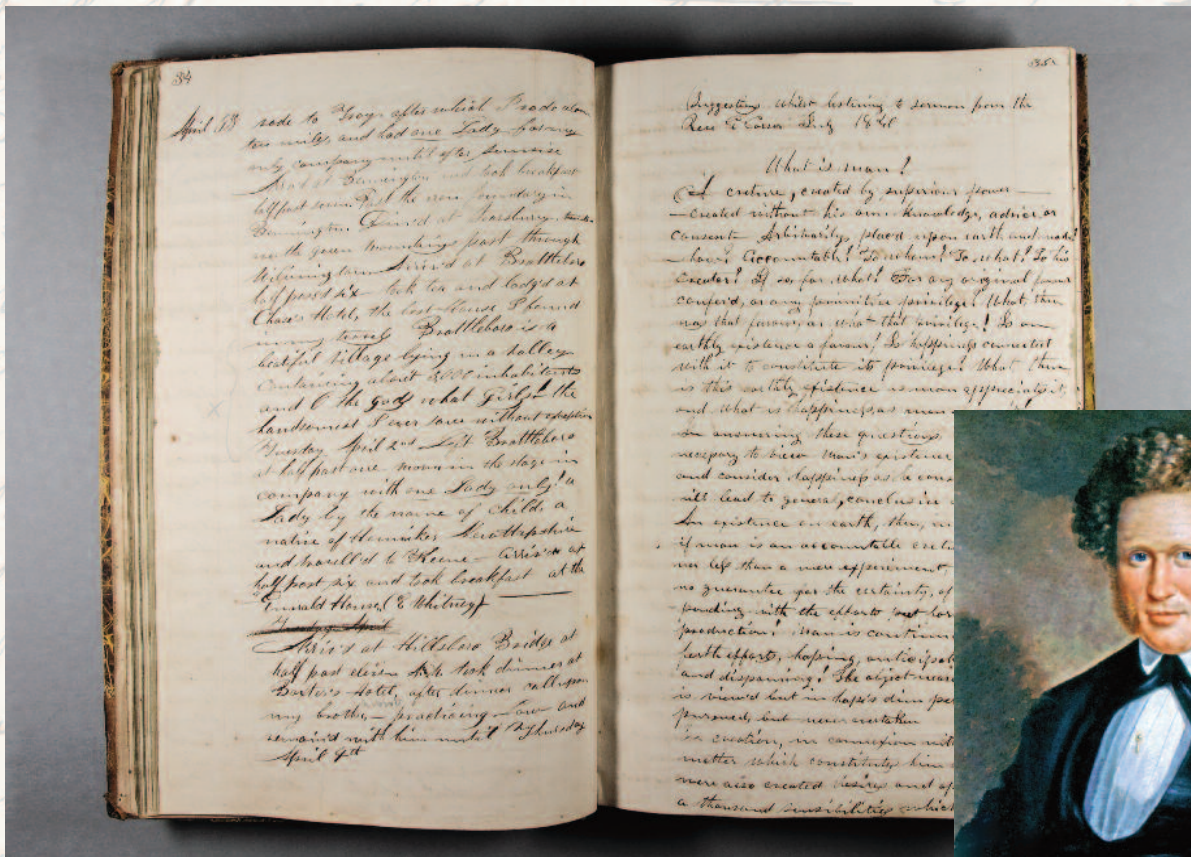 34
April 13 rode to Troy after which I rode alone
ten miles and had one Lady for my
only company until after sunrise
Arriv'd at Bennington and took breakfast
half past seven Past the iron foundary in
Bennington Dined at Searsburry,
on the green mountains past through
Wilmington Arriv'd at Brattleboro
half past six took tea and lodg'd at
Chase's Hotel, the best House I found
in my travels Brattleboro is a
beatiful village lying in a valley
containing about 2000 inhabitants
and O the gods what Girls! the
handsomest I ever saw without exception
Tuesday April 2nd Left Brattleboro
at half past one in the stage in
company with one Lady only! a
Lady by the name of Childs a
native of Henniker Newhapshire
and travell'd to Keene arriv'd at
half past six and took breakfast at the
Emerald House (E Whitney)
Arriv'd at Hillsboro Bridge at
half past eleven took dinner at
Hotel, after dinner call upon
my brother practicing Law and
remain'd with him until Thursday
April 4th
35
Suggestions whilst listening to sermon from the
Rev. July
What is man?
A creture, created by superiour power
created without his own knowledge, advice or
consent Arbitrarily placed upon earth and made
how? Accountable! To whom? To what? To his
Creator? If so for what? For any original favour
confer'd, or any primitive privilege? What then
was that favour, or what that privilege? Is an
earthly existence a favour? Is happiness connected
with it to constitute its privilege? What then
is this earthly existence as man appreciates it
and what is happiness as man
In answering these questions
necessary to view man's existence
and consider happiness as he
will lead to general conclusion
An existence on earth, then,
if man is an accountable
nor less than a mere experiment,
no guarantee for the certainty, of
ponding with the efforts put for
production! Man is continu
forth efforts, hoping, anticipat
and dispairing! The object
is view'd but in hope's dim
pursued, but never overtaken
in creation, in connexion with
matter which constitutes him
were also created desires and
a thousand sensibilities which